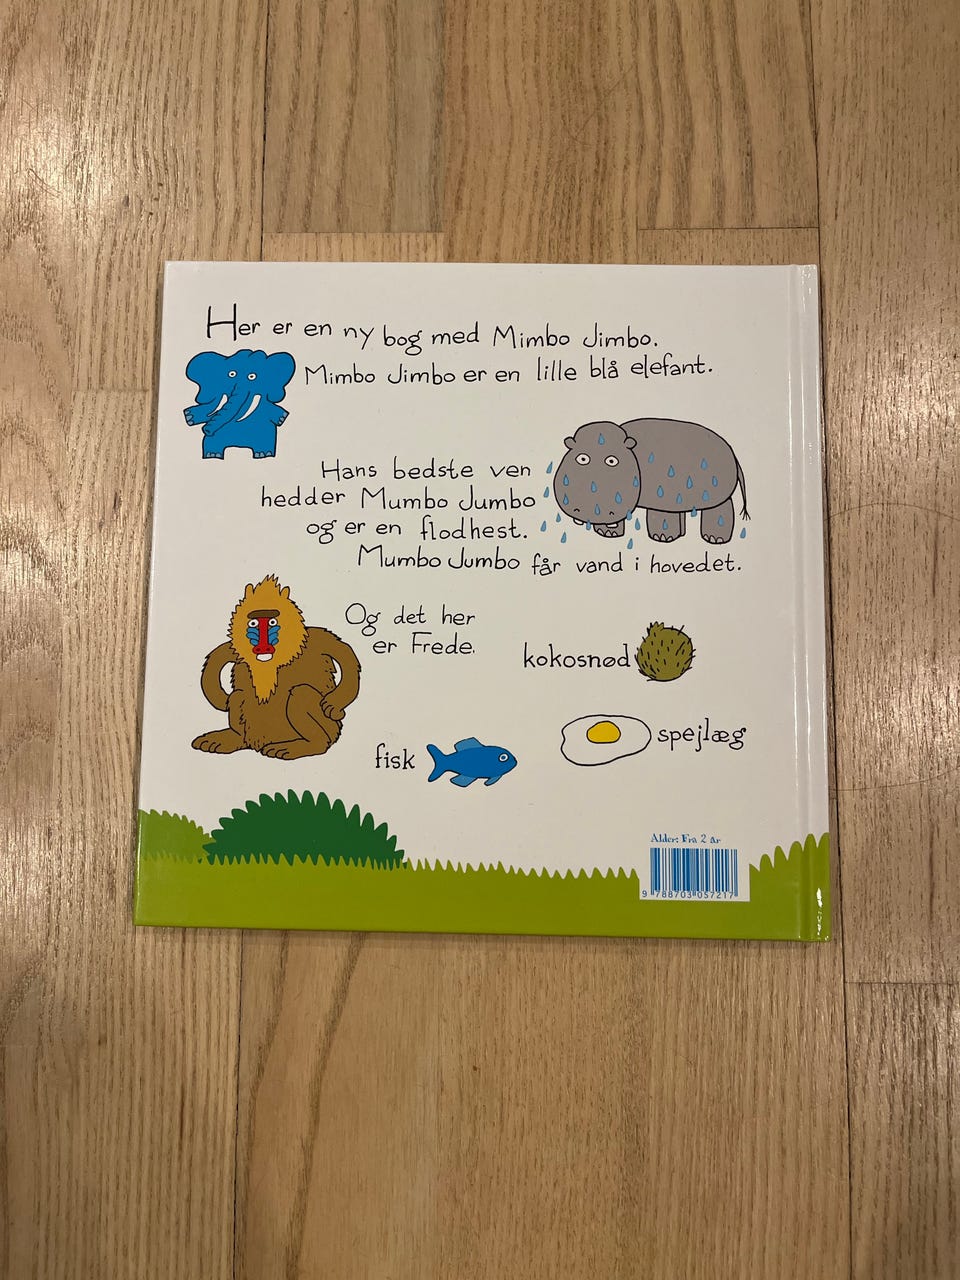 Her er en ny bog med Mimbo Jimbo.
Mimbo Jimbo er en lille blå elefant.
Hans bedste ven
hedder Mumbo Jumbo
og er en flodhest.
Mumbo Jumbo får vand i hovedet.
Og det her
er Frede.
kokosnød
spejlæg
fisk
Alder: Fra 2 år
9 788703 057217